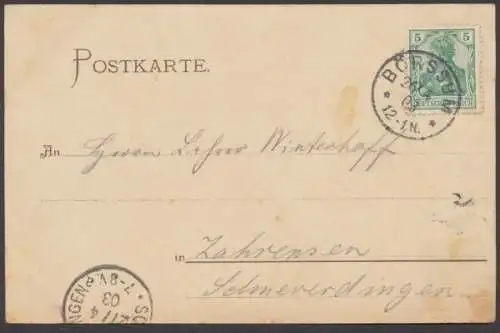 POSTKARTE.
5 5
BÖRSSUM
03
12-1N.
An Herrn Lehrer Winterhoff
2
in Zahrensen
Schneverdingen
7-8V.
4
03
NGEN